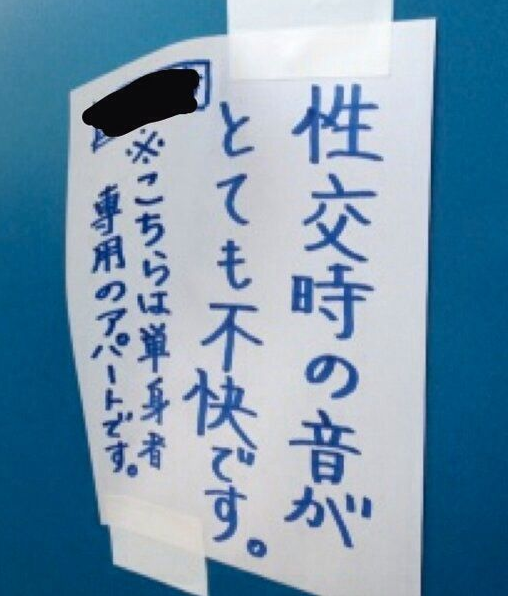 性交時の音が
とても不快です。
※こちらは単身者
専用のアパートです。